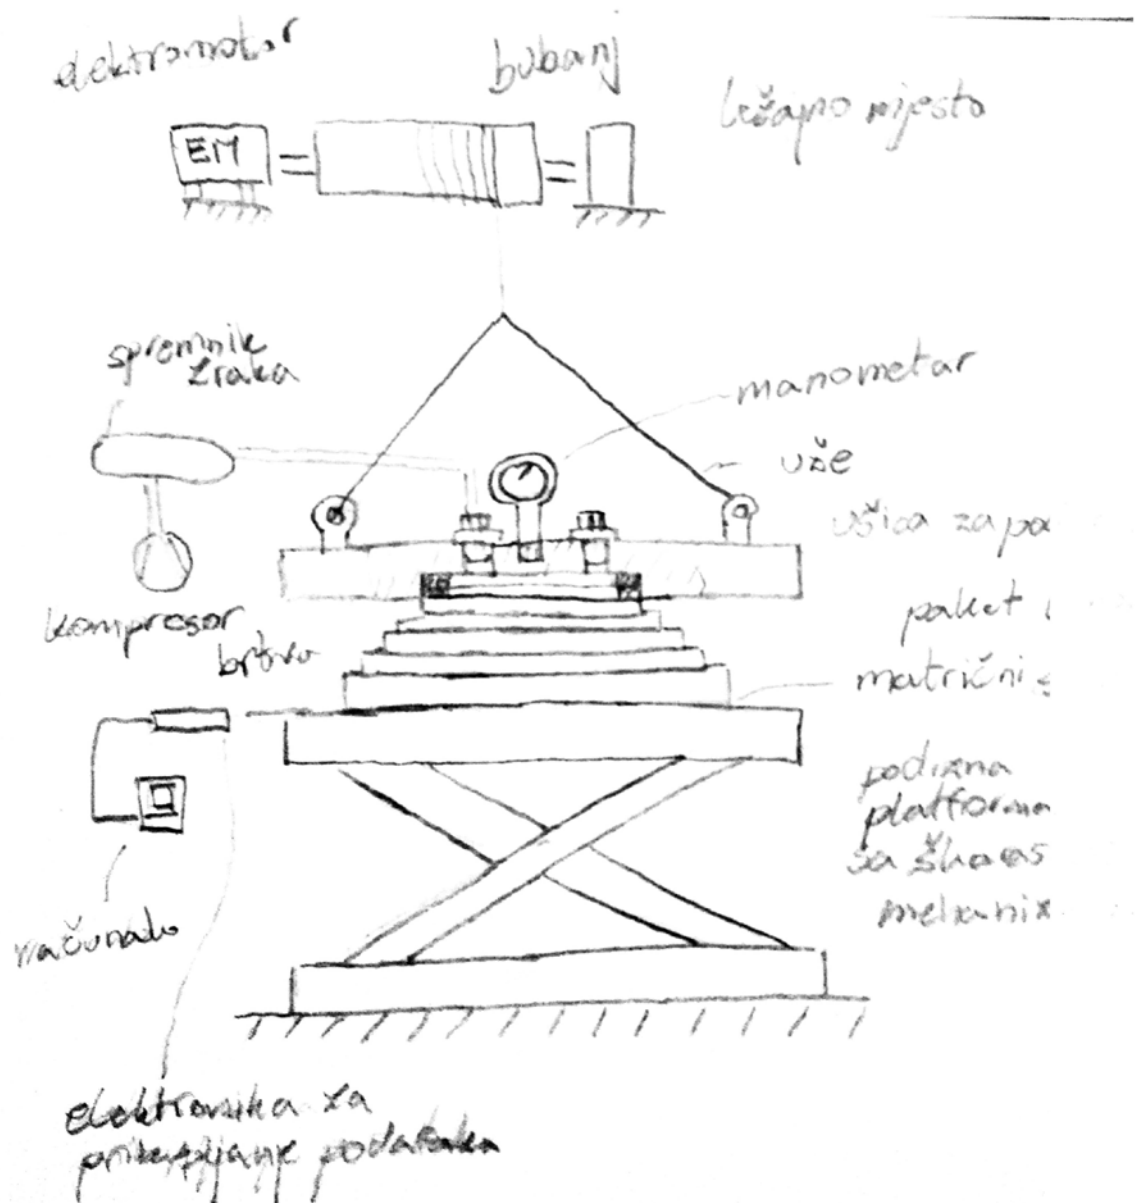 elektromotor
bubanj
ležajno mjesto
EM
spremnik
zraka
manometar
uže
ušica za po
kompresor
brtva
paket
matrični s
podizna
platforma
sa škaras
mehaniz
računalo
elektronika za
prikupljanje podataka